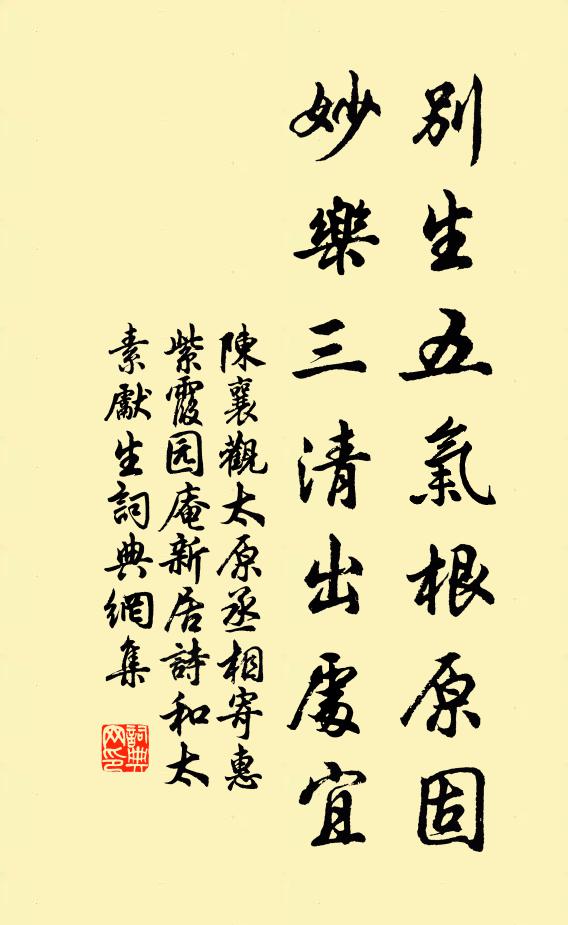 別生五氣根原固
妙樂三清出處宜
陳襄觀太原丞相寄惠
紫霞园庵新居詩和太
素獻生詞典網集
詞典
网印